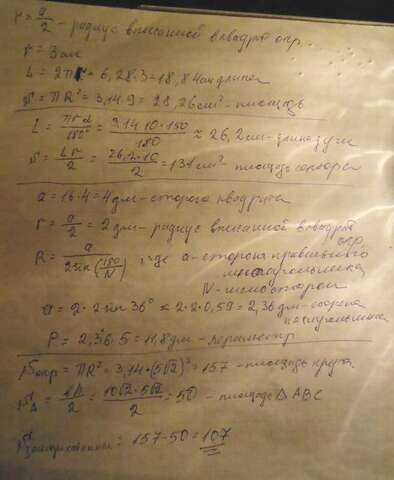 r = a/2 - радиус вписанной в квадрат окр.
r = 3 см
L = 2πr = 6,28·3 = 18,84 см длина
S = πR² = 3,14·9 = 28,26 см² - площадь
L = πrα/180° = 3,14·10·150/180 ≈ 26,2 см - длина дуги
S = Lr/2 = 26,2·10/2 = 131 см² - площадь сектора
a = 16:4 = 4 дм - сторона квадрата
r = a/2 = 2 дм - радиус вписанной в квадрат
окр.
R = a/2sin(180/N) где a - сторона правильного
многоугольника
N - число сторон
a = 2·2sin36° ≈ 2·2·0,59 = 2,36 дм - сторона
пятиугольника
P = 2,36·5 = 11,8 дм - периметр
Sокр = πR² = 3,14·(5√2)² = 157 - площадь круга.
SΔ = = 10√2·5√2/2 = 50 - площадь Δ ABC
= 157-50 = 107